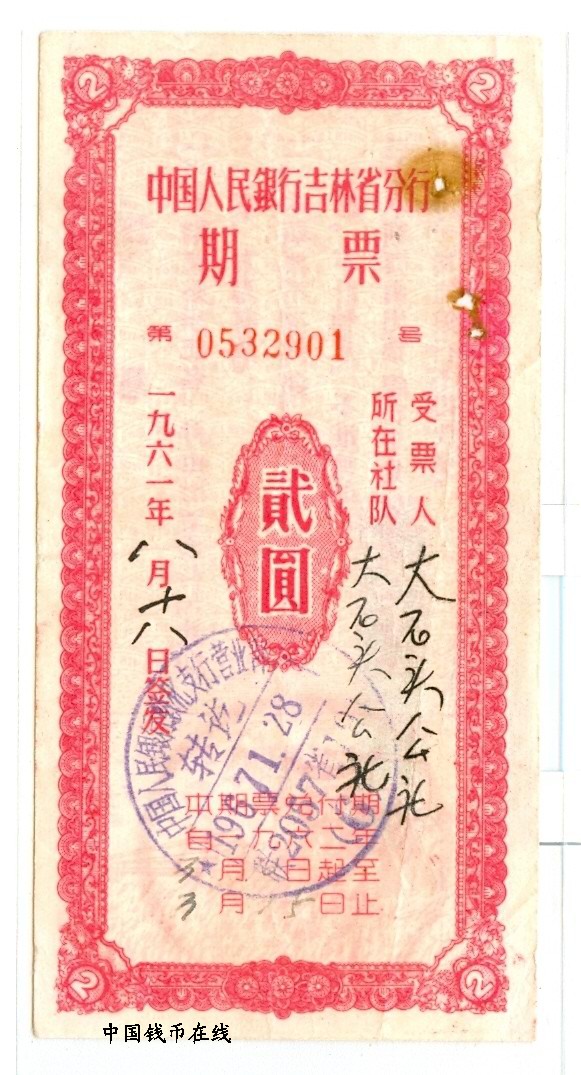 2
2
中国人民銀行吉林省分行
期票
第 0532901 号
受票人 大石头公社
所在社队 大石头公社
貳圓
一九六一年八月十八日签发
本期票兑付期
自一九六二年
3月 日起至
3月15日止
转讫
2097
2
2
中国钱币在线